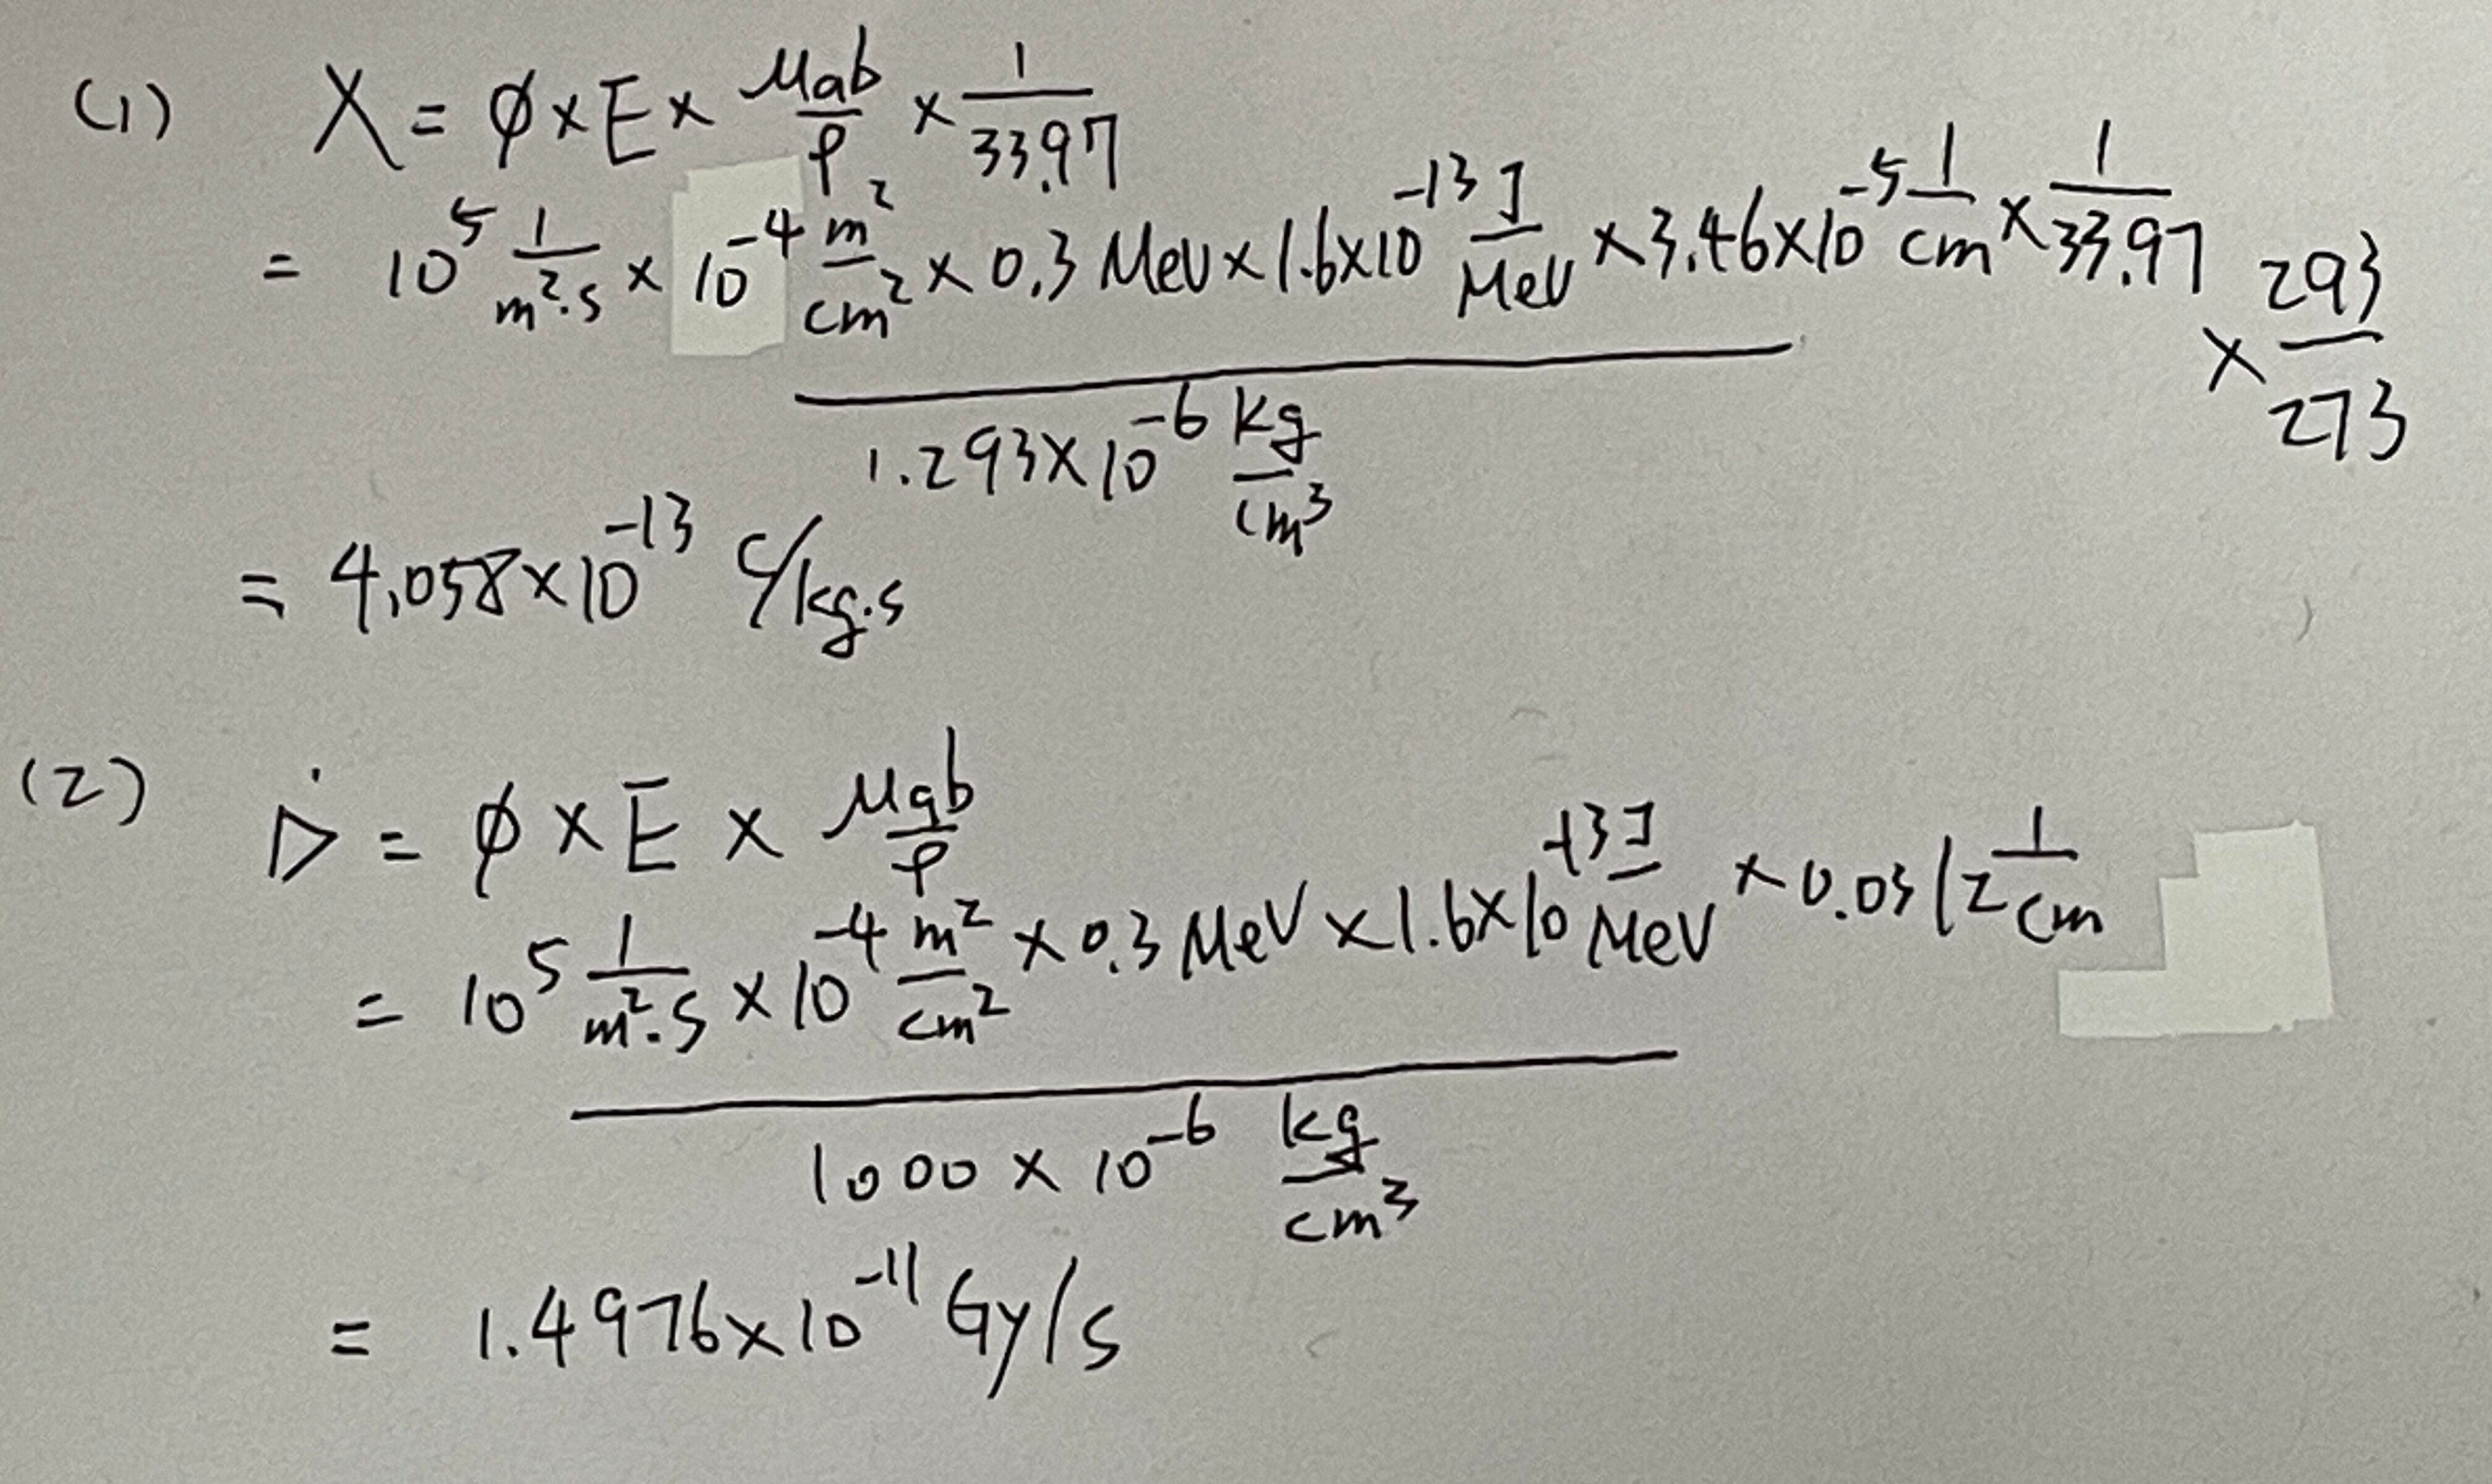 (1) X = ϕ × E × μab/ρ × 1/33.97
= 10^5 1/m²·s × 10^-4 m²/cm² × 0.3 MeV × 1.6×10^-13 J/MeV × 3.46×10^-5 1/cm × 1/33.97 × 293/273
1.293×10^-6 kg/cm³
= 4.058×10^-13 C/kg·s
(2) Ḋ = ϕ × E × μab/ρ
= 10^5 1/m²·s × 10^-4 m²/cm² × 0.3 MeV × 1.6×10^-13 J/MeV × 0.0312 1/cm
1000 × 10^-6 kg/cm³
= 1.4976×10^-11 Gy/s